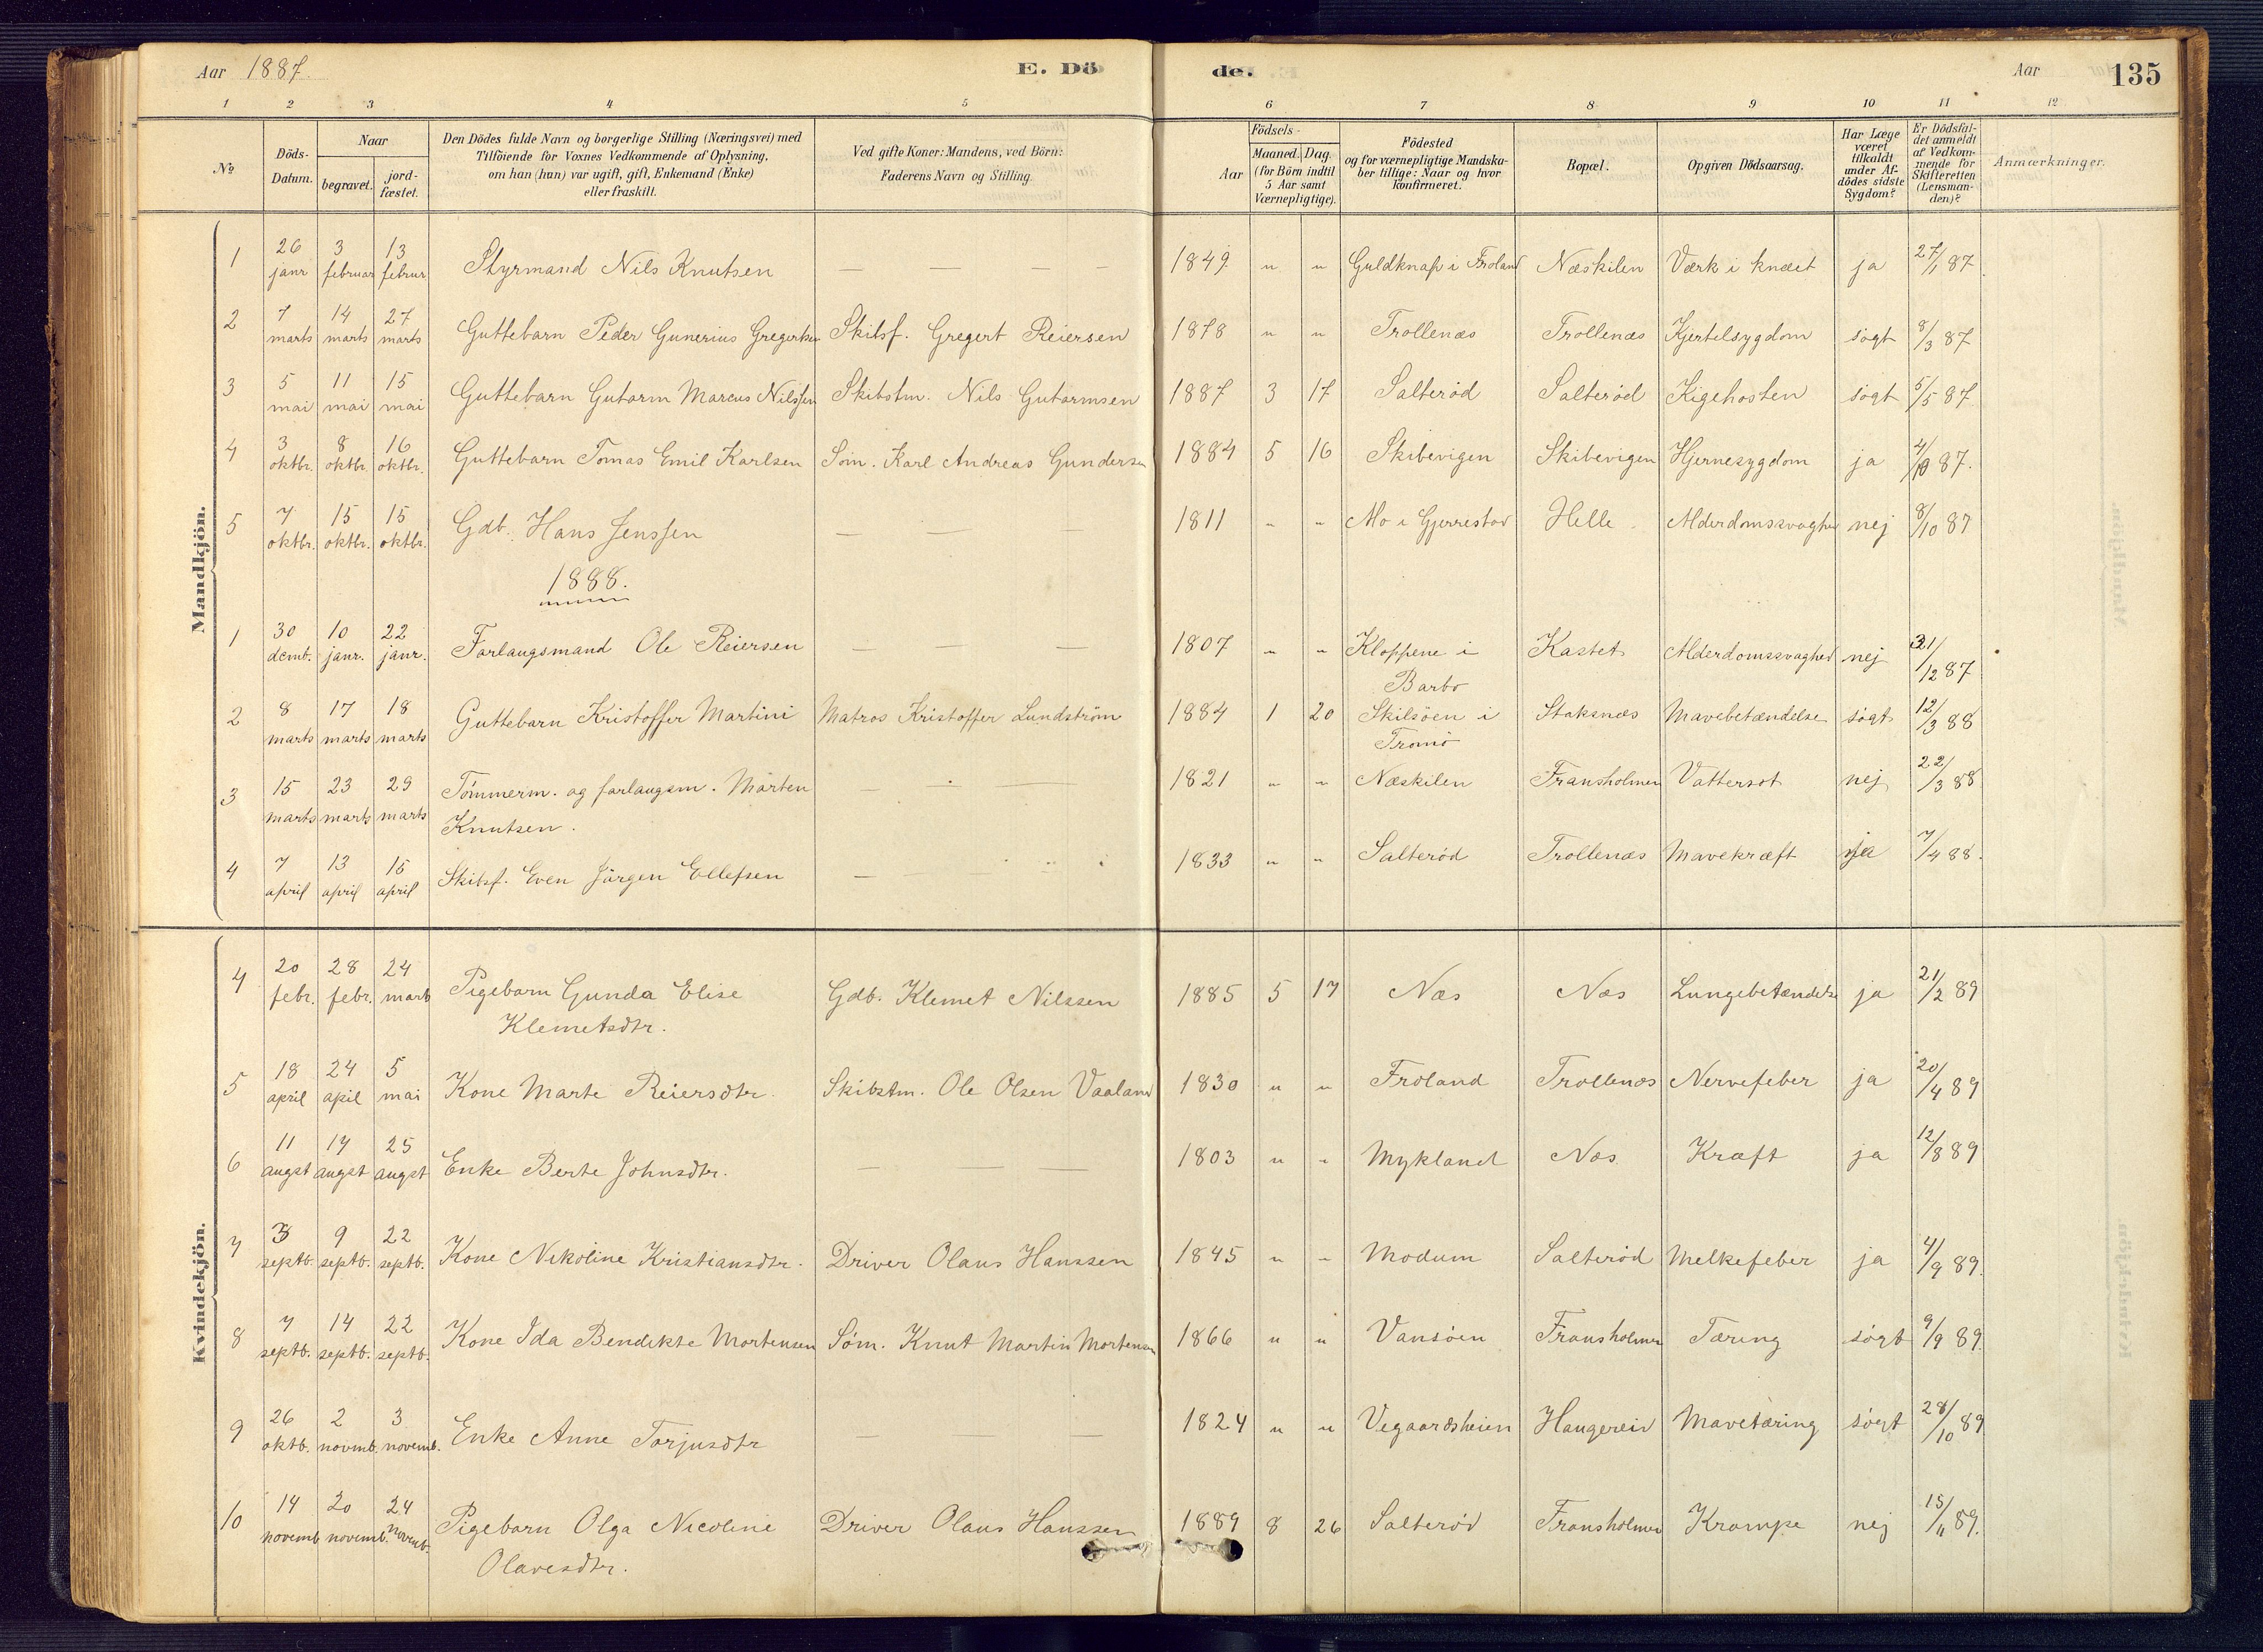 Aar 1887. E. Dö de. Aar 135
1 2 3 4 5 6 7 8 9 10 11 12
No
Döds-Datum.
Naar
begravet.
jord-fæstet.
Den Dödes fulde Navn og borgerlige Stilling (Næringsvei) med
Tilföiende for Voxnes Vedkommende af Oplysning,
om han (hun) var ugift, gift, Enkemand (Enke)
eller fraskilt.
Ved gifte Koner: Mandens, ved Börn:
Faderens Navn og Stilling.
Födsels-
Aar
Maaned. Dag.
(for Börn indtil
5 Aar samt
Værnepligtige).
Födested
og for værnepligtige Mandska-
ber tillige: Naar og hvor
konfirmeret.
Bopæl.
Opgiven Dödsaarsag.
Har Læge
været
tilkaldt
under Af-
dödes sidste
Sygdom?
Er Dödsfal-
det anmeldt
af Vedkom-
mende for
Skifteretten
(Lensman-
den)?
Anmærkninger.
Mandkjön.
1 26 janr 3 februar 13 februr Styrmand Nils Knutsen — — — — 1849. " " Guldknap i Froland Næskilen Værk i knæet ja 27/1 87
2 7 marts 14 marts 27 marts Guttebarn Peder Gunerius Gregertsen Skibsf. Gregert Reiersen 1878 " " Trollenæs Trollenæs Kjertelsygdom søgt 8/3 87
3 5 mai 11 mai 15 mai Guttebarn Gutorm Marcus Nilssen Skibstm. Nils Gutormsen 1887 3 17 Salterød Salterød Kigehosten søgt 5/5 87
4 3 oktbr. 8 oktbr. 16 oktbr. Guttebarn Tomas Emil Karlsen Søm. Karl Andreas Gundersen 1884 5 16 Skibevigen Skibevigen Hjernesygdom ja 4/10 87.
5 7 oktbr. 15 oktbr. 15 oktbr. Gdb. Hans Jenssen — — — 1811 " " Mo i Gjerrestad Helle Alderdomssvaghed nej 8/10 87
1888.
1 30 decmb. 10 janr. 22 janr. Forlaugsmand Ole Reiersen — — — 1807 " " Kloppene i Kastet Alderdomssvaghed nej 31/12 87
Barbo
2 8 marts 17 marts 18 marts Guttebarn Kristoffer Martini Matros Kristoffer Lundström 1884 1 20 Skilsøen i Staksnæs Mavebetændelse søgt 12/3 88
Tromø
3 15 marts 23 marts 29 marts Tømmerm. og forlaugsm. Mørten — — 1821 " " Næskilen Fransholmen Vattersot nej 22/3 88
Knutsen.
4 7 april 13 april 15 april Skibsf. Even Jørgen Ellefsen — 1833 " " Salterød Trollenæs Mavekræft ja 7/4 88.
Kvindekjön.
4 20 febr. 28 febr. 24 marts Pigebarn Gunda Elise Gdb. Klemet Nilssen 1885 5 17 Næs Næs Lungebetændelse ja 21/2 89
Klemetsdtr.
5 18 april 24 apil 5 mai Kone Marte Reiersdtr. Skibstm. Ole Olsen Vaaland 1830 " " Froland Trollenæs Nervefeber ja 20/4 89
6 11 augst 17 augst 25 augst Enke Berte Johnsdtr. — — 1803 " " Mykland Næs Kræft ja 12/8 89
7 3 septb. 9 septb. 22 septb. Kone Nikoline Kristiansdtr. Driver Olaus Hanssen 1845 " " Modum Salterød Melkefeber ja 4/9 89.
8 7 septb. 14 septb. 22 septb. Kone Ida Bendikte Mortensen Søm. Knut Martin Mortensen 1866 " " Vansøen Fransholmen Tæring søgt 9/9 89.
9 26 oktb. 2 novmb. 3 novemb. Enke Anne Torjusdtr — — 1824 " " Vegaardsheien Haugereid Mavetæring søgt 28/10 89
10 14 novemb 20 novemb. 24 Novmb. Pigebarn Olga Nicoline Driver Olaus Hanssen 1889 8 26 Salterød Fransholmen Krampe nej 15/11 89.
Olavesdtr.